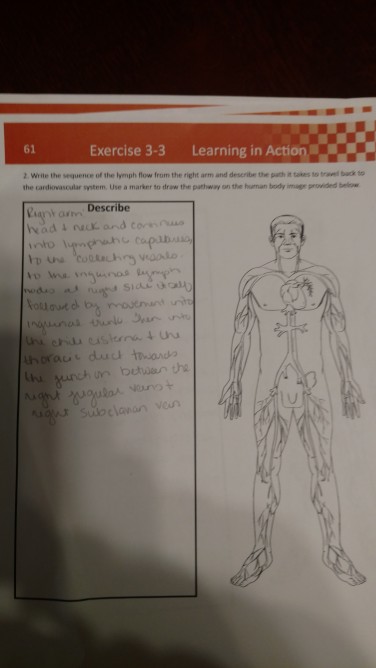 61 Exercise 3-3 Learning in Action
2. Write the sequence of the lymph flow from the right arm and describe the path it takes to travel back to
the cardiovascular system. Use a marker to draw the pathway on the human body image provided below.
Describe
Right arm
head + neck and continues
into lymphatic capillaries
to the collecting vessels.
to the inguinal lymph
nodes at right side
followed by movement into
inguinal trunk. Then into
the cisterna + the
thoracis duct towards
the junction between the
right jugular vans +
right subclavian van